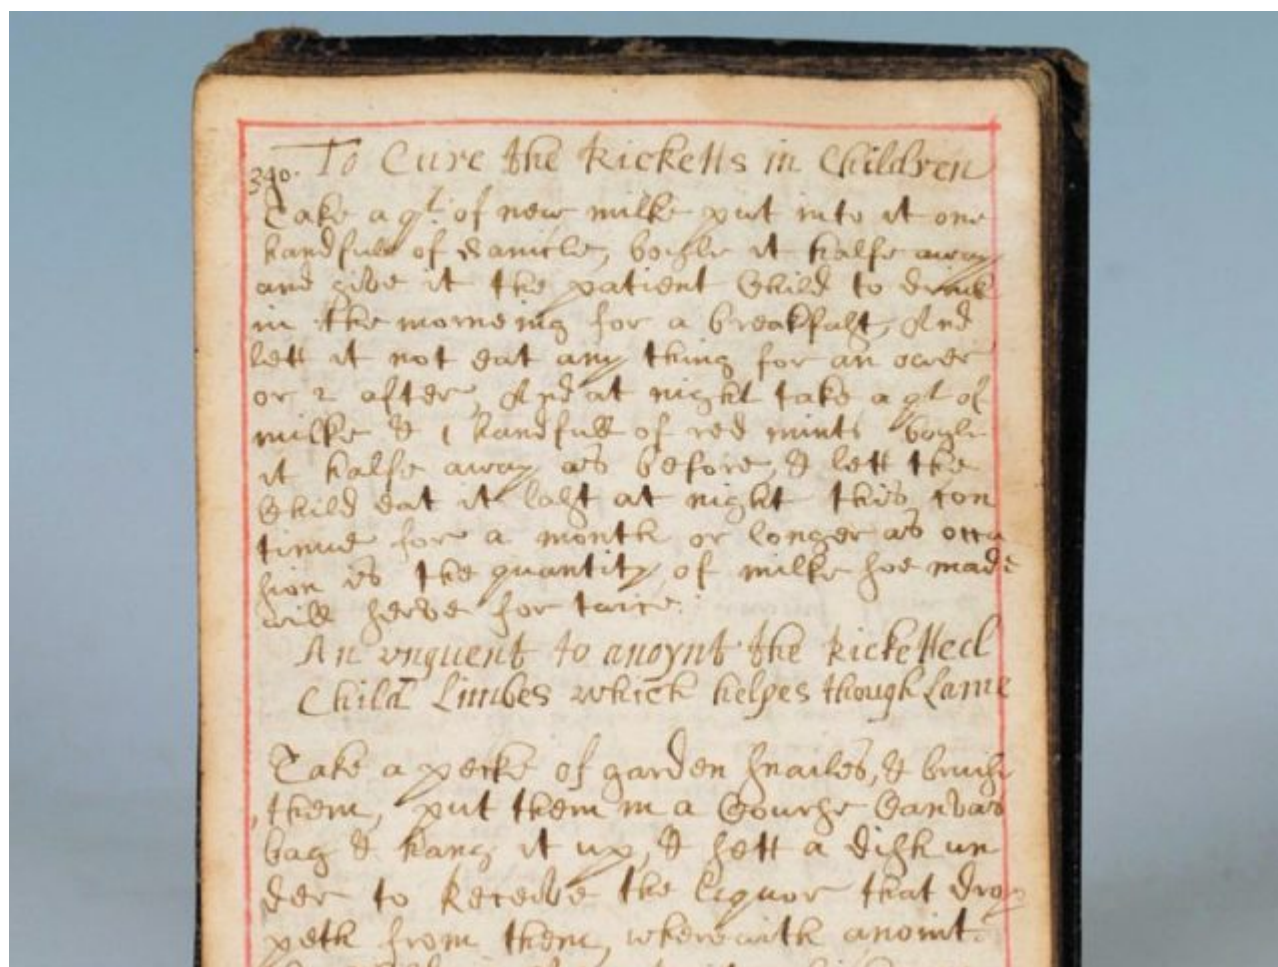 To Cure the Ricketts in Children
340.
Take a qt of new milke put into it one
handfull of Sanicle, boyle it halfe away
and give it the patient Child to drink
in the morneing for a breakfast, And
lett it not eat any thing for an ower
or 2 after, And at night take a qt of
milke & 1 handfull of red mints boyle
it halfe away as before, & lett the
Child eat it last at night this con
tinue for a month or longer as occa
sion is the quantity of milke soe made
will serve for twice.
An vnguent to anoynt the Ricketted
Child Limbes which helpes though Lame
Take a pecke of garden snailes, & bruise
them, put them in a Course Canvas
bag & hang it up, & sett a dish un
der to Receive the liquor that drop
peth from them, wherewith anoint